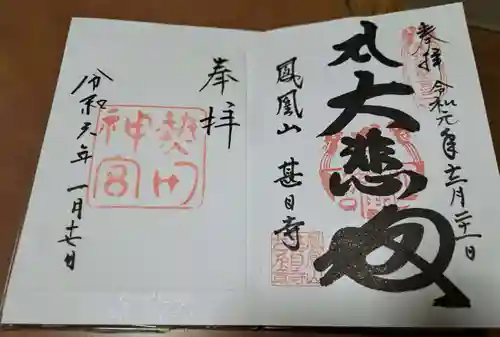 奉拝
令和元年十二月二十一日
大悲殿
鳳凰山 甚目寺
奉拝
熱田
神宮
令和六年 一月十七日